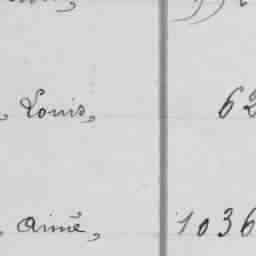 , Louis, 62
, Aimé, 1036